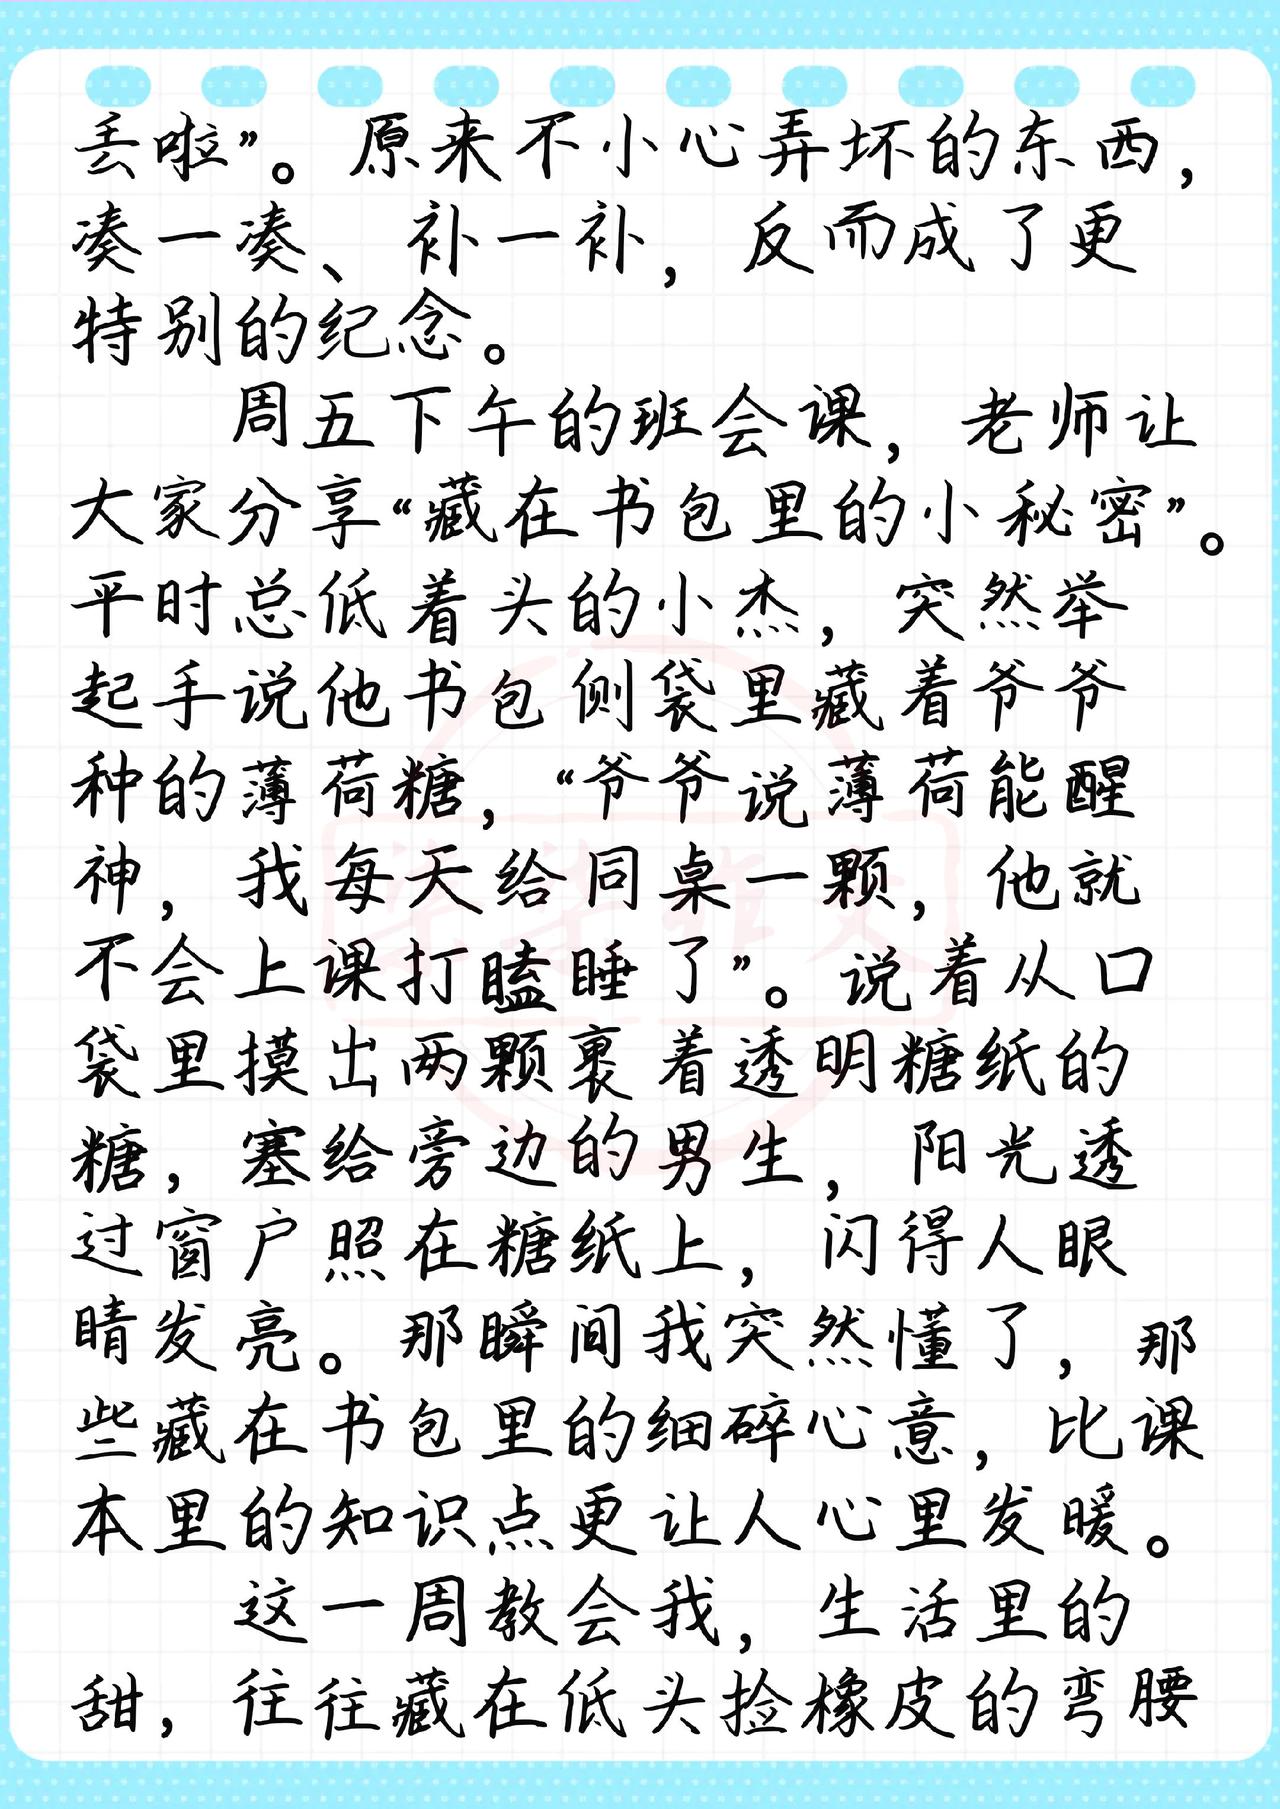 丢啦”。原来不小心弄坏的东西，
凑一凑、补一补，反而成了更
特别的纪念。
周五下午的班会课，老师让
大家分享“藏在书包里的小秘密”。
平时总低着头的小杰，突然举
起手说他书包侧袋里藏着爷爷
种的薄荷糖，“爷爷说薄荷能醒
神，我每天给同桌一颗，他就
不会上课打瞌睡了”。说着从口
袋里摸出两颗裹着透明糖纸的
糖，塞给旁边的男生，阳光透
过窗户照在糖纸上，闪得人眼
睛发亮。那瞬间我突然懂了，那
些藏在书包里的细碎心意，比课
本里的知识点更让人心里发暖。
这一周教会我，生活里的
甜，往往藏在低头捡橡皮的弯腰